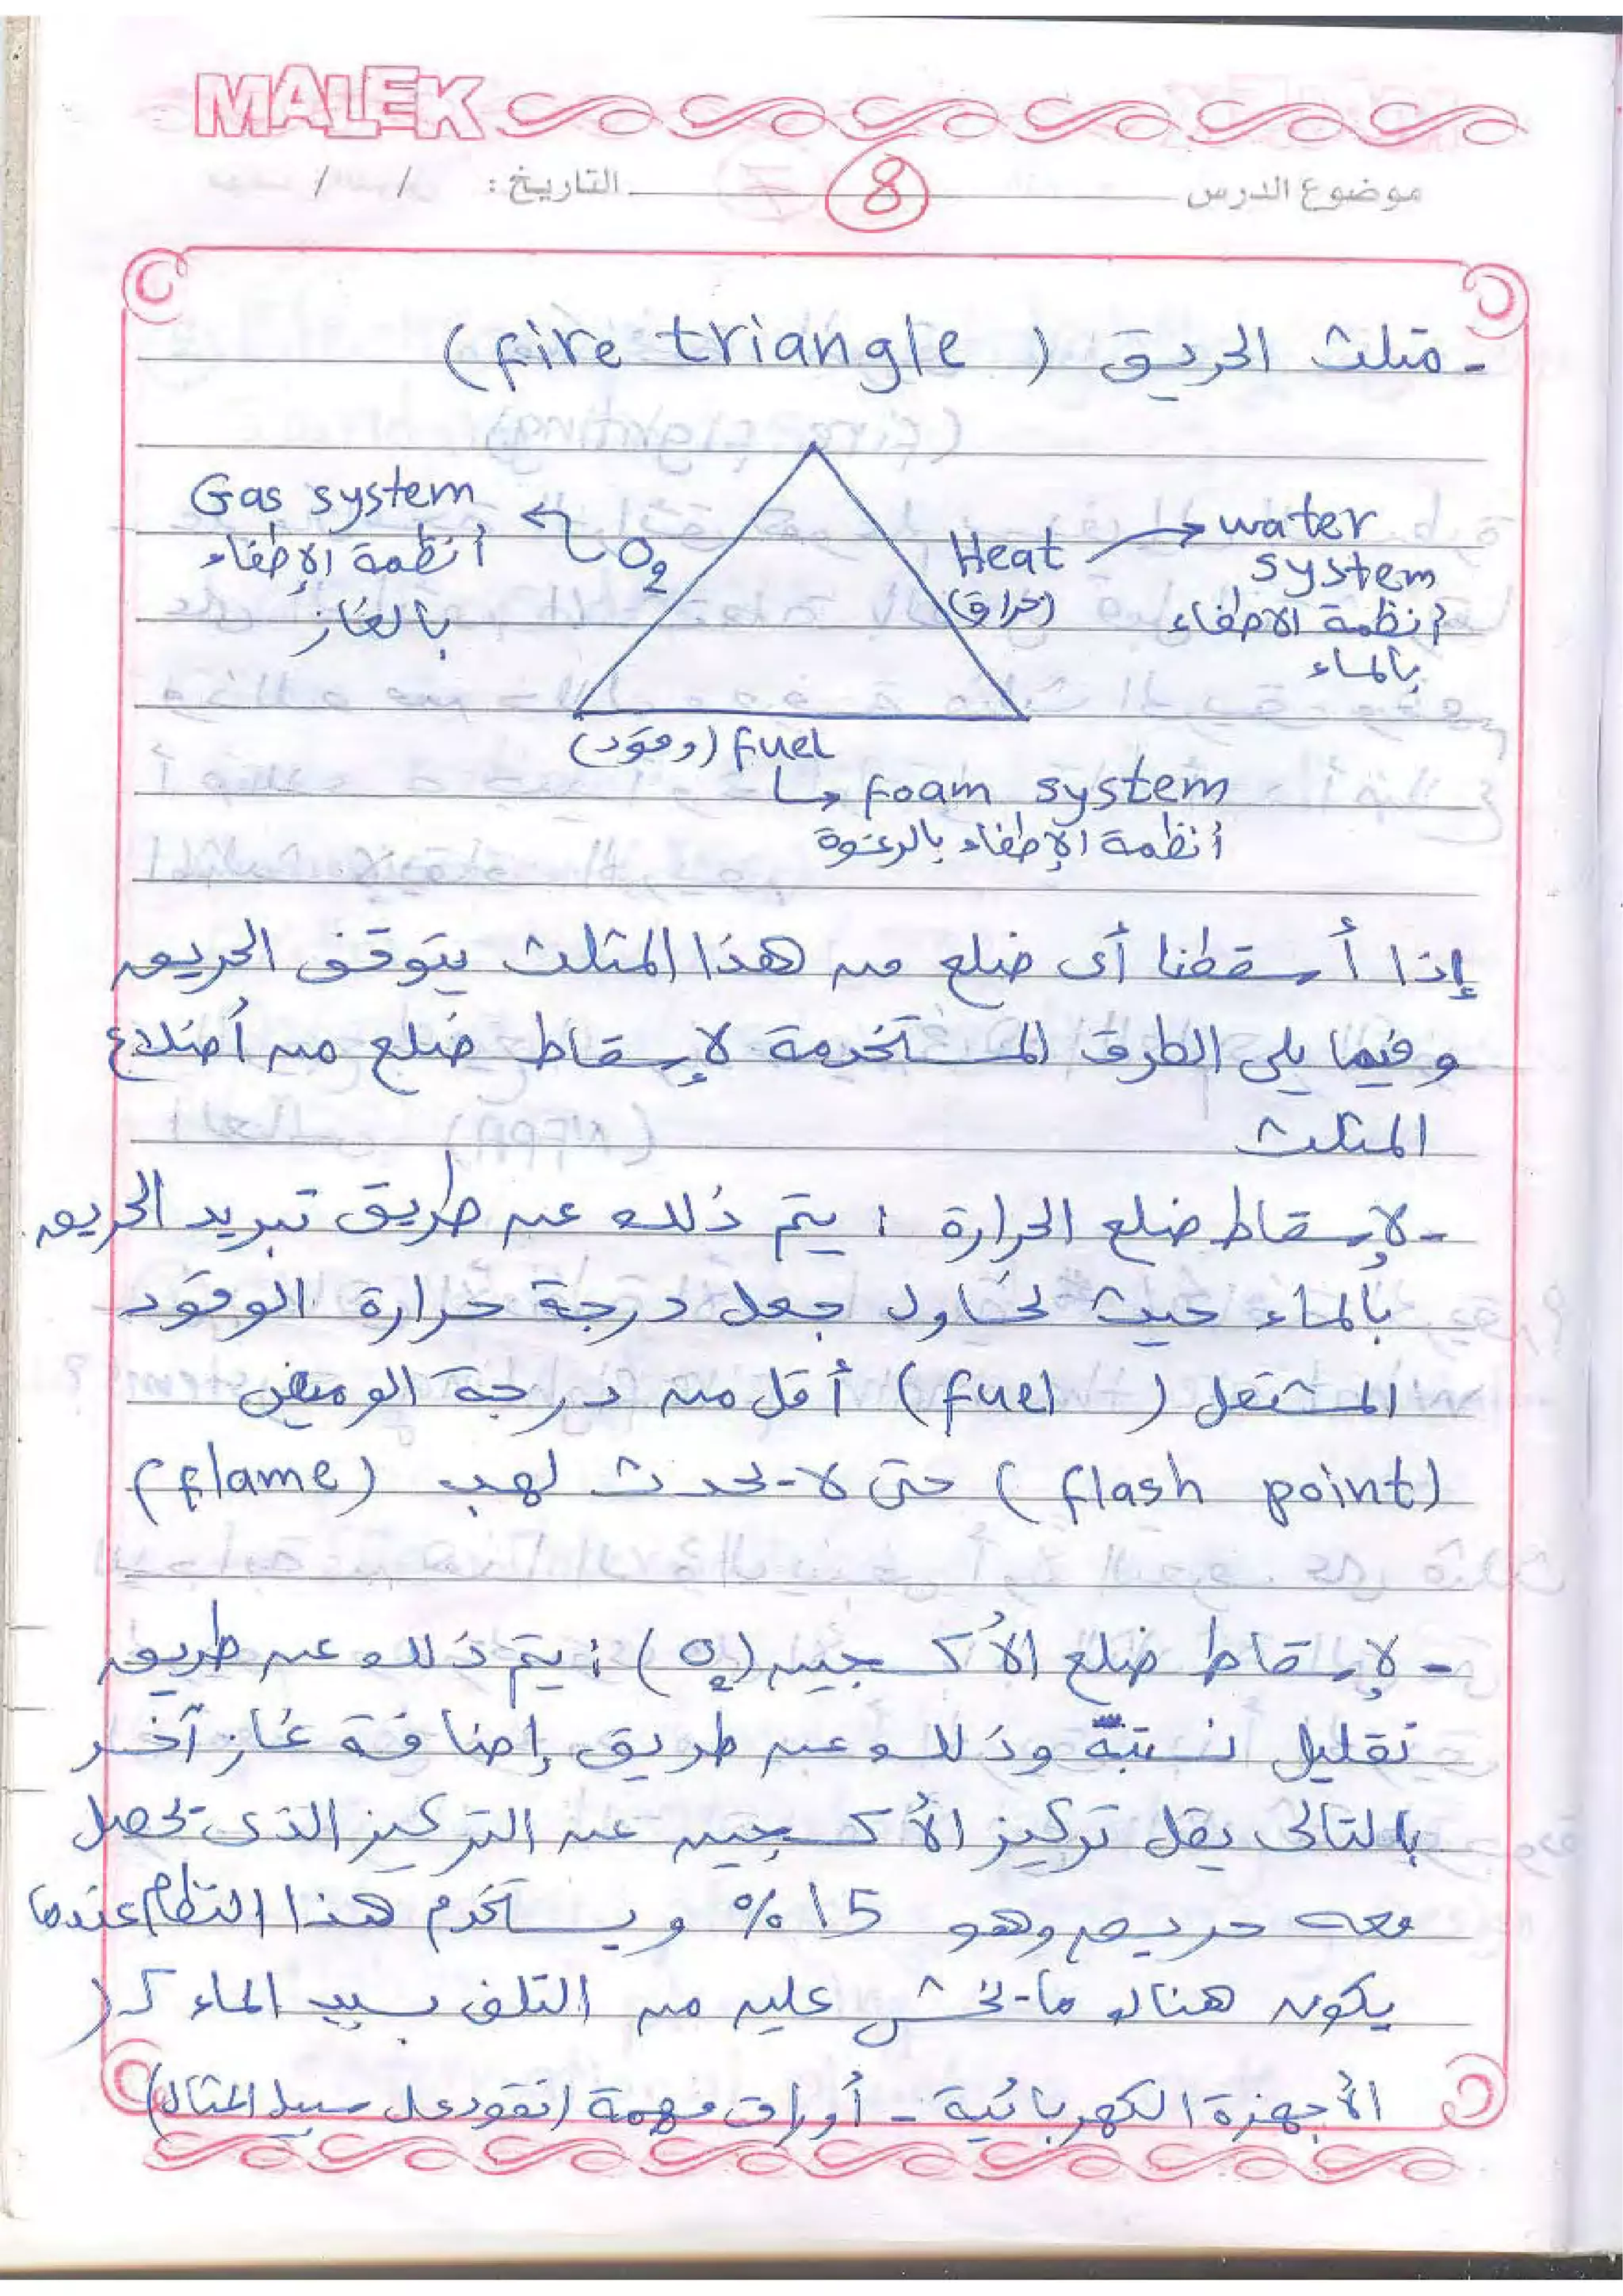 MALEK
موضوع الدرس
8
التاريخ: / /
- مثلث الحريق (fire triangle)
Gas system
أنظمة الإطفاء
بالغاز
O2
Heat
(حرارة)
water
system
أنظمة الاطفاء
بالماء
fuel (وقود)
foam system
أنظمة الإطفاء بالرغوة
إذا أسقطنا أى ضلع من هذا المثلث يتوقف الحريق
وفيما يلى الطرق المستخدمة لإسقاط ضلع من أضلاع
المثلث
- لإسقاط ضلع الحرارة : يتم ذلك عن طريق تبريد الحريق
بالماء حيث نحاول جعل درجة حرارة الوقود
المشتعل (fuel) أقل من درجة الوميض
(flash point) حتى لا يحدث لهب (flame)
- لإسقاط ضلع الأكسجين (O2) : يتم ذلك عن طريق
تقليل نسبته وذلك عن طريق إضافة غاز آخر
بالتالى يقل تركيز الأكسجين عن التركيز الذى يحصل
معه حريق وهو 15% ويستخدم هذا النظام عندما
يكون هناك ما يخش عليه من التلف بسبب الماء كـ (
الأجهزة الكهربائية - أوراق مهمة (نقود على سبيل المثال)